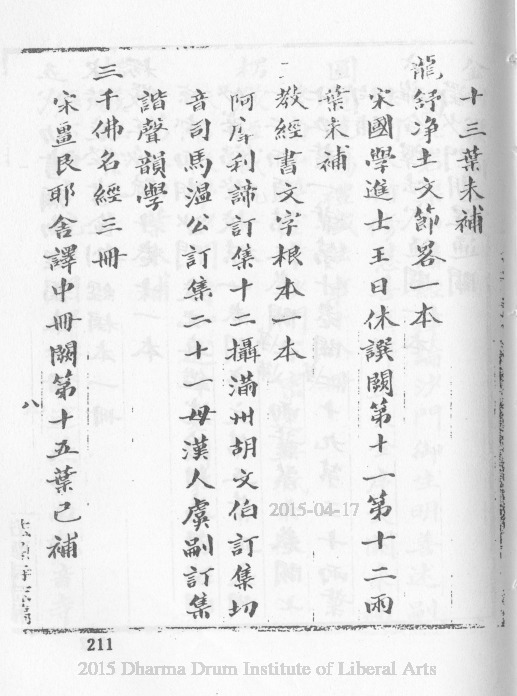 十三葉未補
龍舒净土文節畧一本
宋國學進士王日休譔闕第十一第十二兩
葉未補
二教經書文字根本一本
阿摩利諦訂集十二攝滿州胡文伯訂集切
音司馬温公訂集二十一母漢人虞嗣訂集
諧聲韻學
三千佛名經三冊
宋畺良耶舍譯中冊闕第十五葉已補
八
211
2015-04-17
2015 Dharma Drum Institute of Liberal Arts